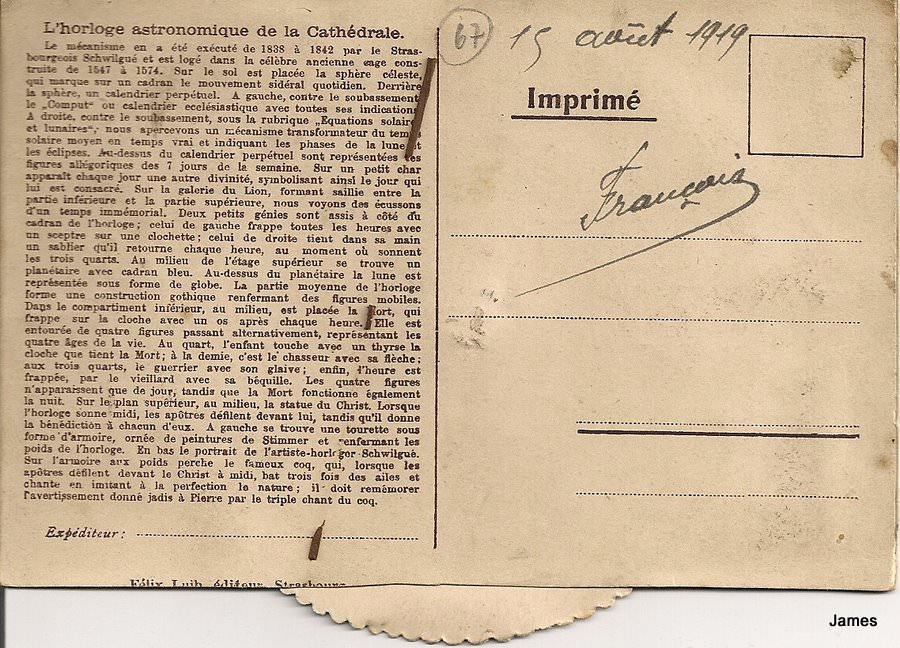 L'horloge astronomique de la Cathédrale.
Le mécanisme en a été exécuté de 1838 à 1842 par le Stras-
bourgeois Schwilgué et est logé dans la célèbre ancienne cage cons-
truite de 1547 à 1574. Sur le sol est placée la sphère céleste,
qui marque sur un cadran le mouvement sidéral quotidien. Derrière
la sphère, un calendrier perpétuel. A gauche, contre le soubassement
le „Comput“ ou calendrier ecclésiastique avec toutes ses indications
A droite, contre le soubassement, sous la rubrique „Equations solaire
et lunaires“, nous apercevons un mécanisme transformateur du temps
solaire moyen en temps vrai et indiquant les phases de la lune et
les éclipses. Au-dessus du calendrier perpétuel sont représentées les
figures allégoriques des 7 jours de la semaine. Sur un petit char
apparaît chaque jour une autre divinité, symbolisant ainsi le jour qui
lui est consacré. Sur la galerie du Lion, formant saillie entre la
partie inférieure et la partie supérieure, nous voyons des écussons
d'un temps immémorial. Deux petits génies sont assis à côté du
cadran de l'horloge; celui de gauche frappe toutes les heures avec
un sceptre sur une clochette; celui de droite tient dans sa main
un sablier qu'il retourne chaque heure, au moment où sonnent
les trois quarts. Au milieu de l'étage supérieur se trouve un
planétaire avec cadran bleu. Au-dessus du planétaire la lune est
représentée sous forme de globe. La partie moyenne de l'horloge
forme une construction gothique renfermant des figures mobiles.
Dans le compartiment inférieur, au milieu, est placée la Mort, qui
frappe sur la cloche avec un os après chaque heure. Elle est
entourée de quatre figures passant alternativement, représentant les
quatre âges de la vie. Au quart, l'enfant touche avec un thyrse la
cloche que tient la Mort; à la demie, c'est le chasseur avec sa flèche;
aux trois quarts, le guerrier avec son glaive; enfin, l'heure est
frappée, par le vieillard avec sa béquille. Les quatre figures
n'apparaissent que de jour, tandis que la Mort fonctionne également
la nuit. Sur le plan supérieur, au milieu, la statue du Christ. Lorsque
l'horloge sonne midi, les apôtres défilent devant lui, tandis qu'il donne
la bénédiction à chacun d'eux. A gauche se trouve une tourette sous
forme d'armoire, ornée de peintures de Stimmer et renfermant les
poids de l'horloge. En bas le portrait de l'artiste-horloger Schwilgué.
Sur l'armoire aux poids perche le fameux coq, qui, lorsque les
apôtres défilent devant le Christ à midi, bat trois fois des ailes et
chante en imitant à la perfection le nature; il doit remémorer
l'avertissement donné jadis à Pierre par le triple chant du coq.
Expéditeur:
Félix Luib, éditeur, Strasbourg
67
15 août 1919
Imprimé
François
James